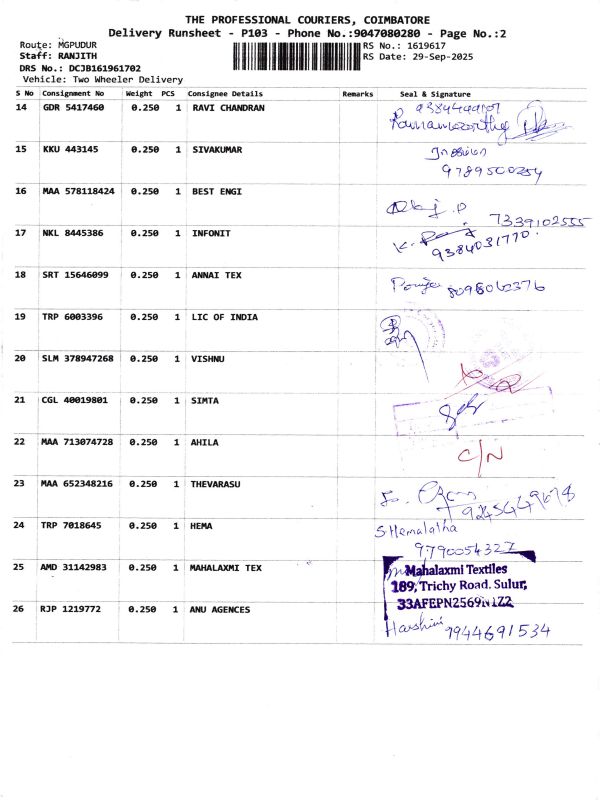 THE PROFESSIONAL COURIERS, COIMBATORE
Delivery Runsheet - P103 - Phone No.:9047080280 - Page No.:2
Route: MGPUDUR RS No.: 1619617
Staff: RANJITH RS Date: 29-Sep-2025
DRS No.: DCJB161961702
Vehicle: Two Wheeler Delivery
S No Consignment No Weight PCS Consignee Details Remarks Seal & Signature
14 GDR 5417460 0.250 1 RAVI CHANDRAN
15 KKU 443145 0.250 1 SIVAKUMAR
9789500254
16 MAA 578118424 0.250 1 BEST ENGI
7339102555
17 NKL 8445386 0.250 1 INFONIT
9384031770.
18 SRT 15646099 0.250 1 ANNAI TEX
8098062376
19 TRP 6003396 0.250 1 LIC OF INDIA
20 SLM 378947268 0.250 1 VISHNU
21 CGL 40019801 0.250 1 SIMTA
22 MAA 713074728 0.250 1 AHILA C/N
23 MAA 652348216 0.250 1 THEVARASU
9245449678
24 TRP 7018645 0.250 1 HEMA S Hemalatha
9790054327
25 AMD 31142983 0.250 1 MAHALAXMI TEX Mahalaxmi Textiles
189, Trichy Road, Sulur,
33AFEPN2569N1Z2
26 RJP 1219772 0.250 1 ANU AGENCES
Harshini 7944691534